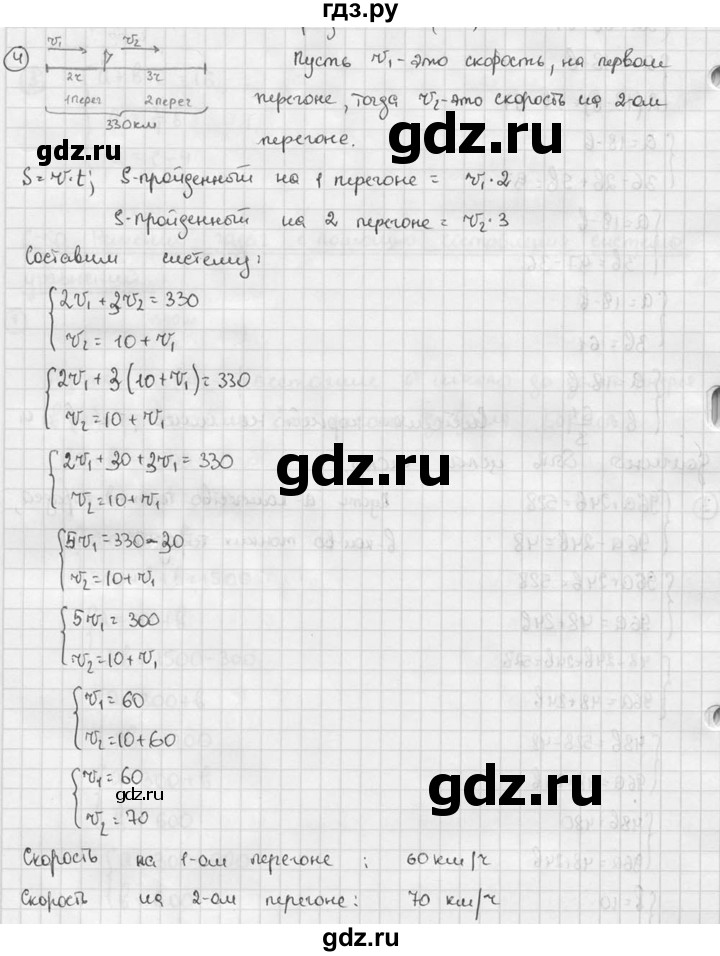 гдз.ру
4
v₁ v₂
2ч 3ч
1 перег 2 перег
330 км
Пусть v₁ - это скорость, на первом
перегоне, тогда v₂ - это скорость на 2-ом
перегоне.
gdz.ru
S = v · t; S-пройденный на 1 перегоне = v₁ · 2
S-пройденный на 2 перегоне = v₂ · 3
Составим систему:
{2v₁ + 3v₂ = 330
v₂ = 10 + v₁
{2v₁ + 3(10 + v₁) = 330
v₂ = 10 + v₁
gdz.ru
{2v₁ + 30 + 3v₁ = 330
v₂ = 10 + v₁
{5v₁ = 330 - 30
v₂ = 10 + v₁
gdz.ru
{5v₁ = 300
v₂ = 10 + v₁
{v₁ = 60
v₂ = 10 + 60
{v₁ = 60
v₂ = 70
gdz.ru
gdz.ru
Скорость на 1-ом перегоне : 60 км/ч
Скорость на 2-ом перегоне : 70 км/ч
gdz.ru